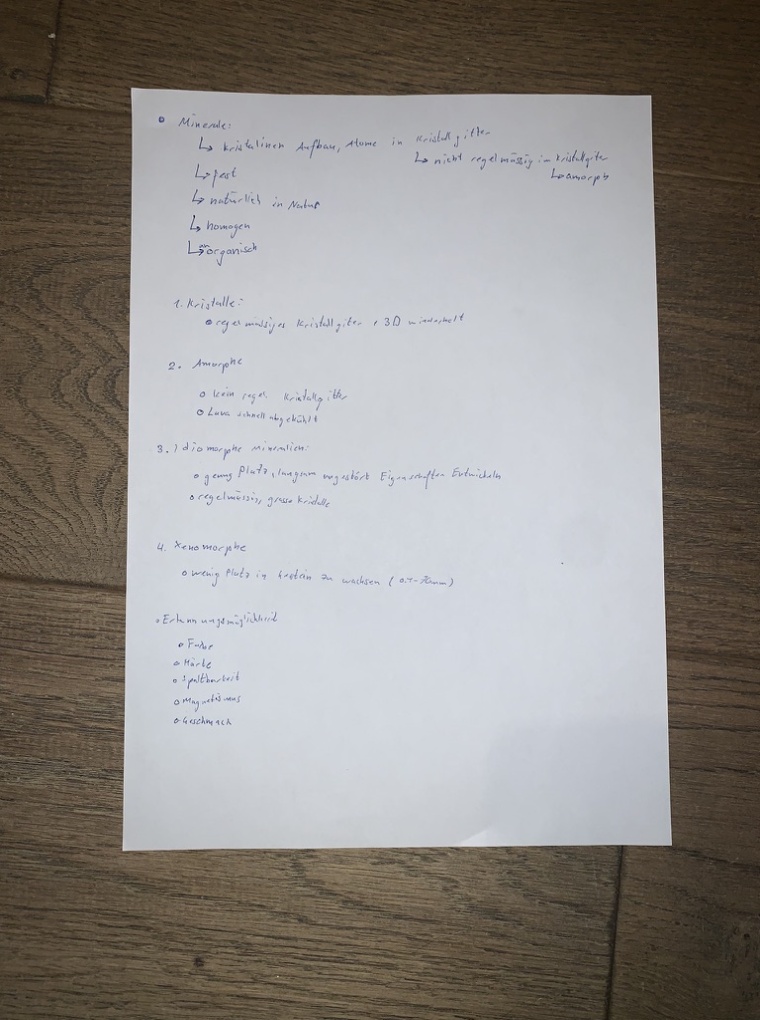 Minerale:
↳ kristalinen Aufbau, Atome in Kristallgitter
↳ nicht regelmässig im Kristallgiter
↳ amorph
↳ fest
↳ natürlich in Natur
↳ homogen
↳ anorganisch
1. Kristalle:
regelmässiges Kristallgiter + 3D wiederholt
2. Amorphe
kein regel. Kristallgitter
Lava schnell abgekühlt
3. Idiomorphe Mineralien:
genug Platz, langsam ungestört Eigenschaften Entwickeln
regelmässig, grosse Kristalle
4. Xenomorphe
wenig Platz in Gestein zu wachsen (
Erkennungsmöglichkeit
Farbe
Härte
Spaltbarkeit
Magnetismus
Geschmack